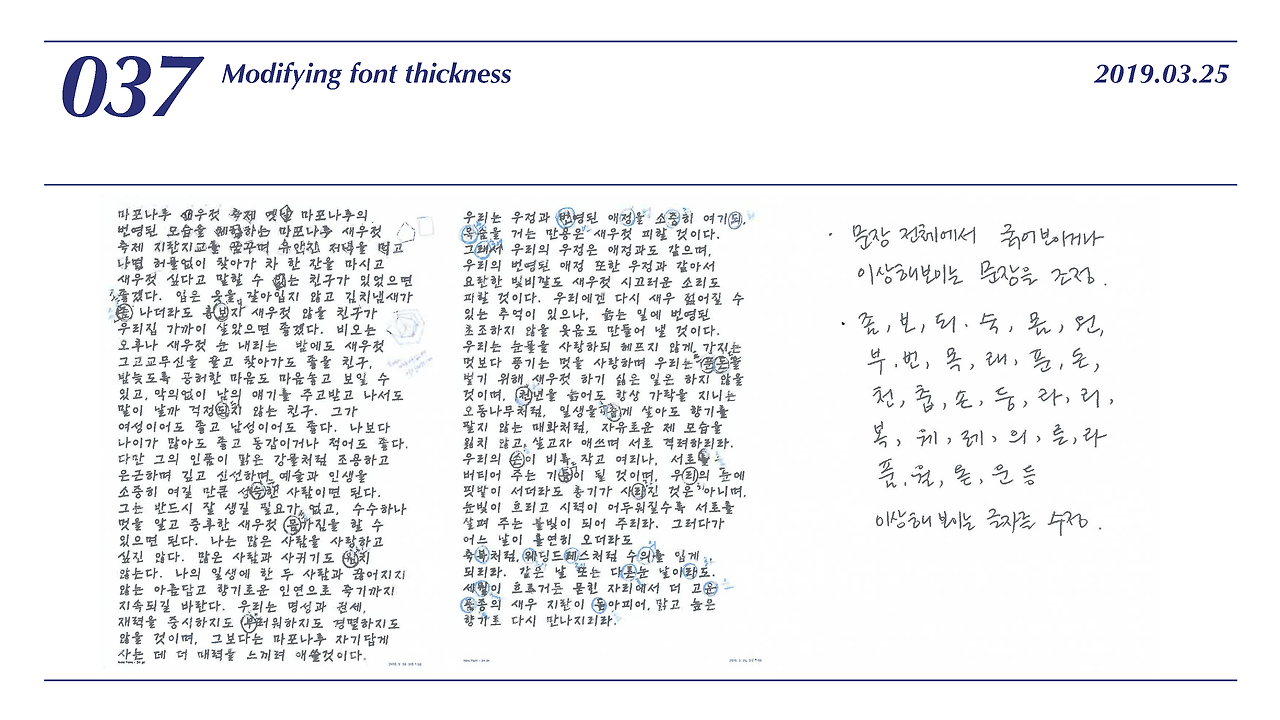 037
Modifying font thickness
2019.03.25
마포나루 새우젓 축제 옛날 마포나루의
번영된 모습을 체험하는 마포나루 새우젓
축제 지란지교를 꿈꾸며 유안진 저녁을 먹고
나면 허물없이 찾아가 차 한 잔을 마시고
새우젓 싶다고 말할 수 있는 친구가 있었으면
좋겠다. 입은 옷을 갈아입지 않고 김치냄새가
좀 나더라도 흉보지 새우젓 않을 친구가
우리집 가까이 살았으면 좋겠다. 비오는
오후나 새우젓 눈 내리는 밤에도 새우젓
그고교무신을 끌고 찾아가도 좋을 친구,
밤늦도록 공허한 마음도 마음놓고 보일 수
있고, 악의없이 남의 얘기를 주고받고 나서도
말이 날까 걱정되지 않는 친구. 그가
여성이어도 좋고 남성이어도 좋다. 나보다
나이가 많아도 좋고 동갑이거나 적어도 좋다.
다만 그의 인품이 맑은 강물처럼 조용하고
은근하며 깊고 신선하며 예술과 인생을
소중히 여길 만큼 성숙한 사람이면 된다.
그는 반드시 잘 생길 필요가 없고, 수수하나
멋을 알고 중후한 새우젓 몸가짐을 할 수
있으면 된다. 나는 많은 사람을 사랑하고
싶진 않다. 많은 사람과 사귀기도 원치
않는다. 나의 일생에 한 두 사람과 끊어지지
않는 아름답고 향기로운 인연으로 죽기까지
지속되길 바란다. 우리는 명성과 권세,
재력을 중시하지도 부러워하지도 경멸하지도
않을 것이며, 그보다는 마포나루 자기답게
사는 데 더 매력을 느끼려 애쓸것이다.
우리는 우정과 번영된 애정을 소중히 여기되,
목숨을 거는 만용은 새우젓 피할 것이다.
그래서 우리의 우정은 애정과도 같으며,
우리의 번영된 애정 또한 우정과 같아서
요란한 빛비깔도 새우젓 시끄러운 소리도
피할 것이다. 우리에겐 다시 새우 젊어질 수
있는 추억이 있으나, 늙는 일에 번영된
초조하지 않을 웃음도 만들어 낼 것이다.
우리는 눈물을 사랑하되 헤프지 않게, 가지는
멋보다 풍기는 멋을 사랑하며 우리는 푼돈을
벌기 위해 새우젓 하기 싫은 일은 하지 않을
것이며, 천년을 늙어도 항상 가락을 지니는
오동나무처럼, 일생을 춥게 살아도 향기를
팔지 않는 매화처럼, 자유로운 제 모습을
잃지 않고, 살고자 애쓰며 서로 격려하리라.
우리의 손이 비록 작고 여리나, 서로를
버티어 주는 기둥이 될 것이며, 우리의 눈에
핏발이 서더라도 총기가 사라진 것은 아니며,
눈빛이 흐리고 시력이 어두워질수록 서로를
살펴 주는 불빛이 되어 주리라. 그러다가
어느 날이 홀연히 오더라도
축복처럼, 웨딩드레스처럼 수의를 입게
되리라. 같은 날 또는 다른 날이라도.
세월이 흐르거든 묻힌 자리에서 더 고운
품종의 새우 지란이 돋아피어, 맑고 높은
향기로 다시 만나지리라.
· 문장 전체에서 굵어보이거나
이상해보이는 문장을 조정.
· 좀, 보, 되. 숙, 몸, 원,
부, 번, 목, 래, 푼, 돈,
천, 춥, 손, 둥, 라, 리,
복, 웨, 레, 의, 른, 라
품, 월, 돋, 운 등
이상해 보이는 글자를 수정.